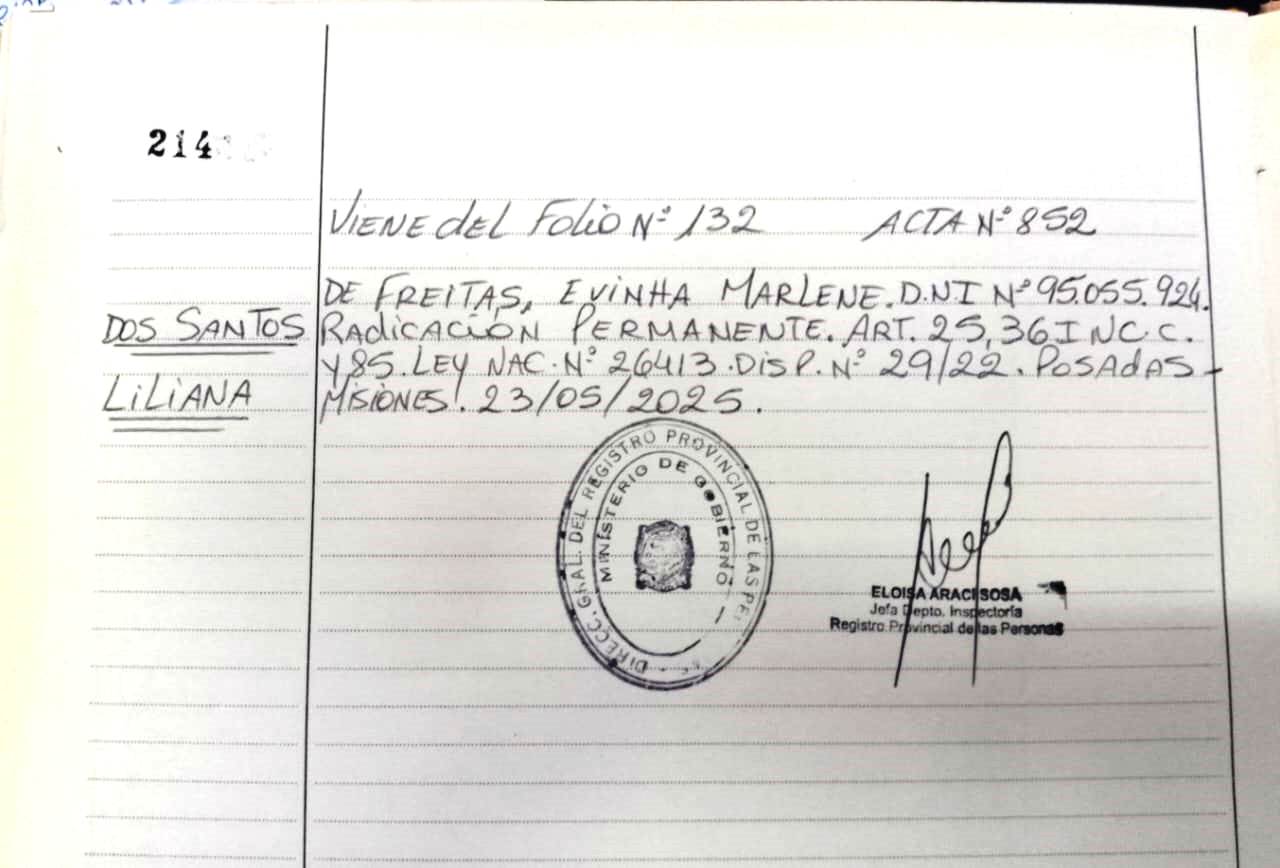 214
VIENE dEL FOLIO Nº 132 ACTA Nº 852
DE FREITAS, EVINHA MARLENE. D.N.I Nº 95.055.924.
DOS SANTOS
RADICACIÓN PERMANENTE. ART. 25, 36 INC C.
Y 85. LEY NAC. Nº 26413. DISP. Nº 29/22. POSADAS -
LILIANA
MISIONES. 23/05/2025.
DIRECC. GRAL. DEL REGISTRO PROVINCIAL DE LAS PE
MINISTERIO DE GOBIERNO
ELOISA ARACI SOSA
Jefa Depto. Inspectoría
Registro Provincial de las Personas